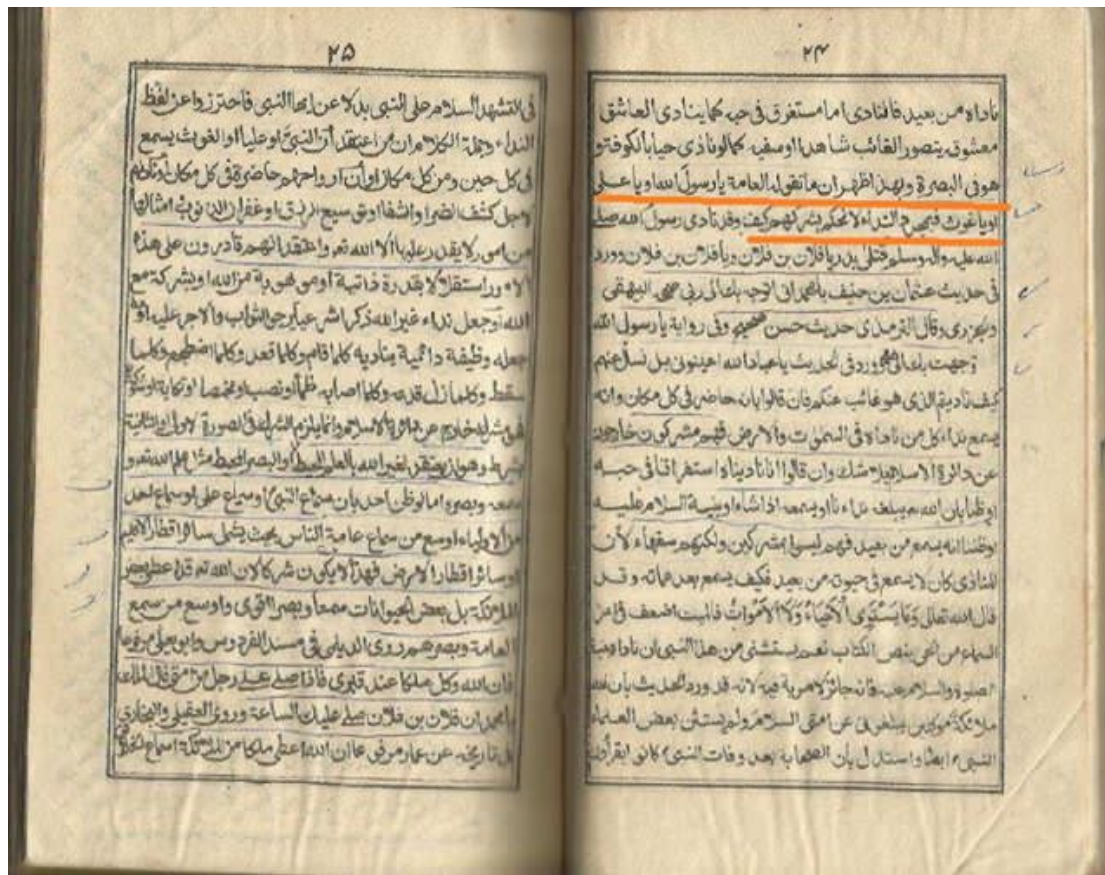 ۲۴
ناداه من بعيد فالمنادى اما مستغرق فى حبه كما ينادى العاشق
معشوقه بتصور الغائب شاهدا او سفيه كما لو نادى حيا بالكوفة و
هو فى البصرة وبهذا ظهر ان ما تقوله العامة يا رسول الله او يا على
او يا غوث فبمجرد النداء لا نحكم بشركهم كيف وقد نادى رسول الله صلى
الله عليه واله وسلم قتلى بدر يا فلان بن فلان ويا فلان بن فلان وورد
فى حديث عثمان بن حنيف يا محمد انى اتوجه بك الى ربى صححه البيهقى
والجزرى وقال الترمذى حديث حسن صحيح وفى رواية يا رسول الله
توجهت بك الى وورد فى الحديث يا عباد الله اعينونى بل نسأل عنهم
كيف ناديتم الذى هو غائب عنكم فان قالوا بانه حاضر فى كل مكان وانه
يسمع نداء كل من ناداه فى السموات والارض فهم مشركون خارجون
عن دائرة الاسلام بلا شك وان قالوا انا ناديناه استغراقا فى حبه
او ظنا بان الله يبلغه نداءنا او يسمعه اذا شاء او بنية السلام عليه
او ظننا انه يسمع من بعيد فهم ليسوا بمشركين ولكنهم سفهاء لأن
المنادى كان لا يسمع فى حيوته من بعيد فكيف يسمع بعد مماته وقد
قال الله تعالى وَمَا يَسْتَوِى الْأَحْيَاءُ وَلَا الْأَمْوَاتُ فالميت اضعف فى امر
السماع من الحى بنص الكتاب نعم يستثنى من هذا النبى ان ناداه بنية
الصلوة والسلام عليه فانه جائز لا مرية فيه لانه قد ورد الحديث بأن لله
ملائكة موكلين يبلغونى عن امتى السلام ولم يستثن بعض العلماء
النبى ايضا واستدل بأن الصحابة بعد وفات النبى كانوا يقرأون
۲۵
فى التشهد السلام على النبى بدلا عن ايها النبى فاحترزوا عن لفظ
النداء وجملة الكلام ان من اعتقد أن النبى او عليا او الغوث يسمع
فى كل حين ومن كل مكان او أن ارواحهم حاضرة فى كل مكان او ناداهم
لاجل كشف الضر او الشفا او توسيع الرزق او غفران الذنوب امثالها
من امور لا يقدر عليها الا الله تعالى واعتقد انهم قادرون على هذه
الامور استقلالا بقدرة ذاتية او موهوبة من الله او بشركة مع
الله او جعل نداء غير الله ذكرا شرعيا يرجو الثواب والاجر عليه او
جعله وظيفة دائمية يناديه كلما قام وكلما قعد وكلما اضطجع وكلما
سقط وكلما زل قدمه وكلما اصابه ظمأ ونصب ومخمصة او نكاية
فهو مشرك خارج عن دائرة الاسلام وانما يلزم الشرك فى الصورة الاولى والثانية
بشرط وهو ان يعتقد لغير الله بالعلم المحيط او البصر المحيط مثل علم الله تعالى و
سمعه وبصره اما لو ظن احد بان سماع النبى او سماع على او سماع احد
من الاولياء اوسع من سماع عامة الناس بحيث يشمل سائر اقطار الاقليم
او سائر اقطار الارض فهذا لا يكون شركا لان الله تعالى قد اعطى بعض
الملائكة بل بعض الحيوانات سمعا وبصرا اقوى واوسع من سمع
العامة وبصرهم روى الديلمى فى مسند الفردوس وابو يعلى مرفوعا
فان الله وكل ملكا عند قبرى فاذا صلى على رجل من امتى قال الملك
يا محمد ان فلان بن فلان صلى عليك الساعة وروى العقيلى والبخارى
فى تاريخه عن عمار مرفوعا ان الله اعطى ملكا من الملائكة اسماع